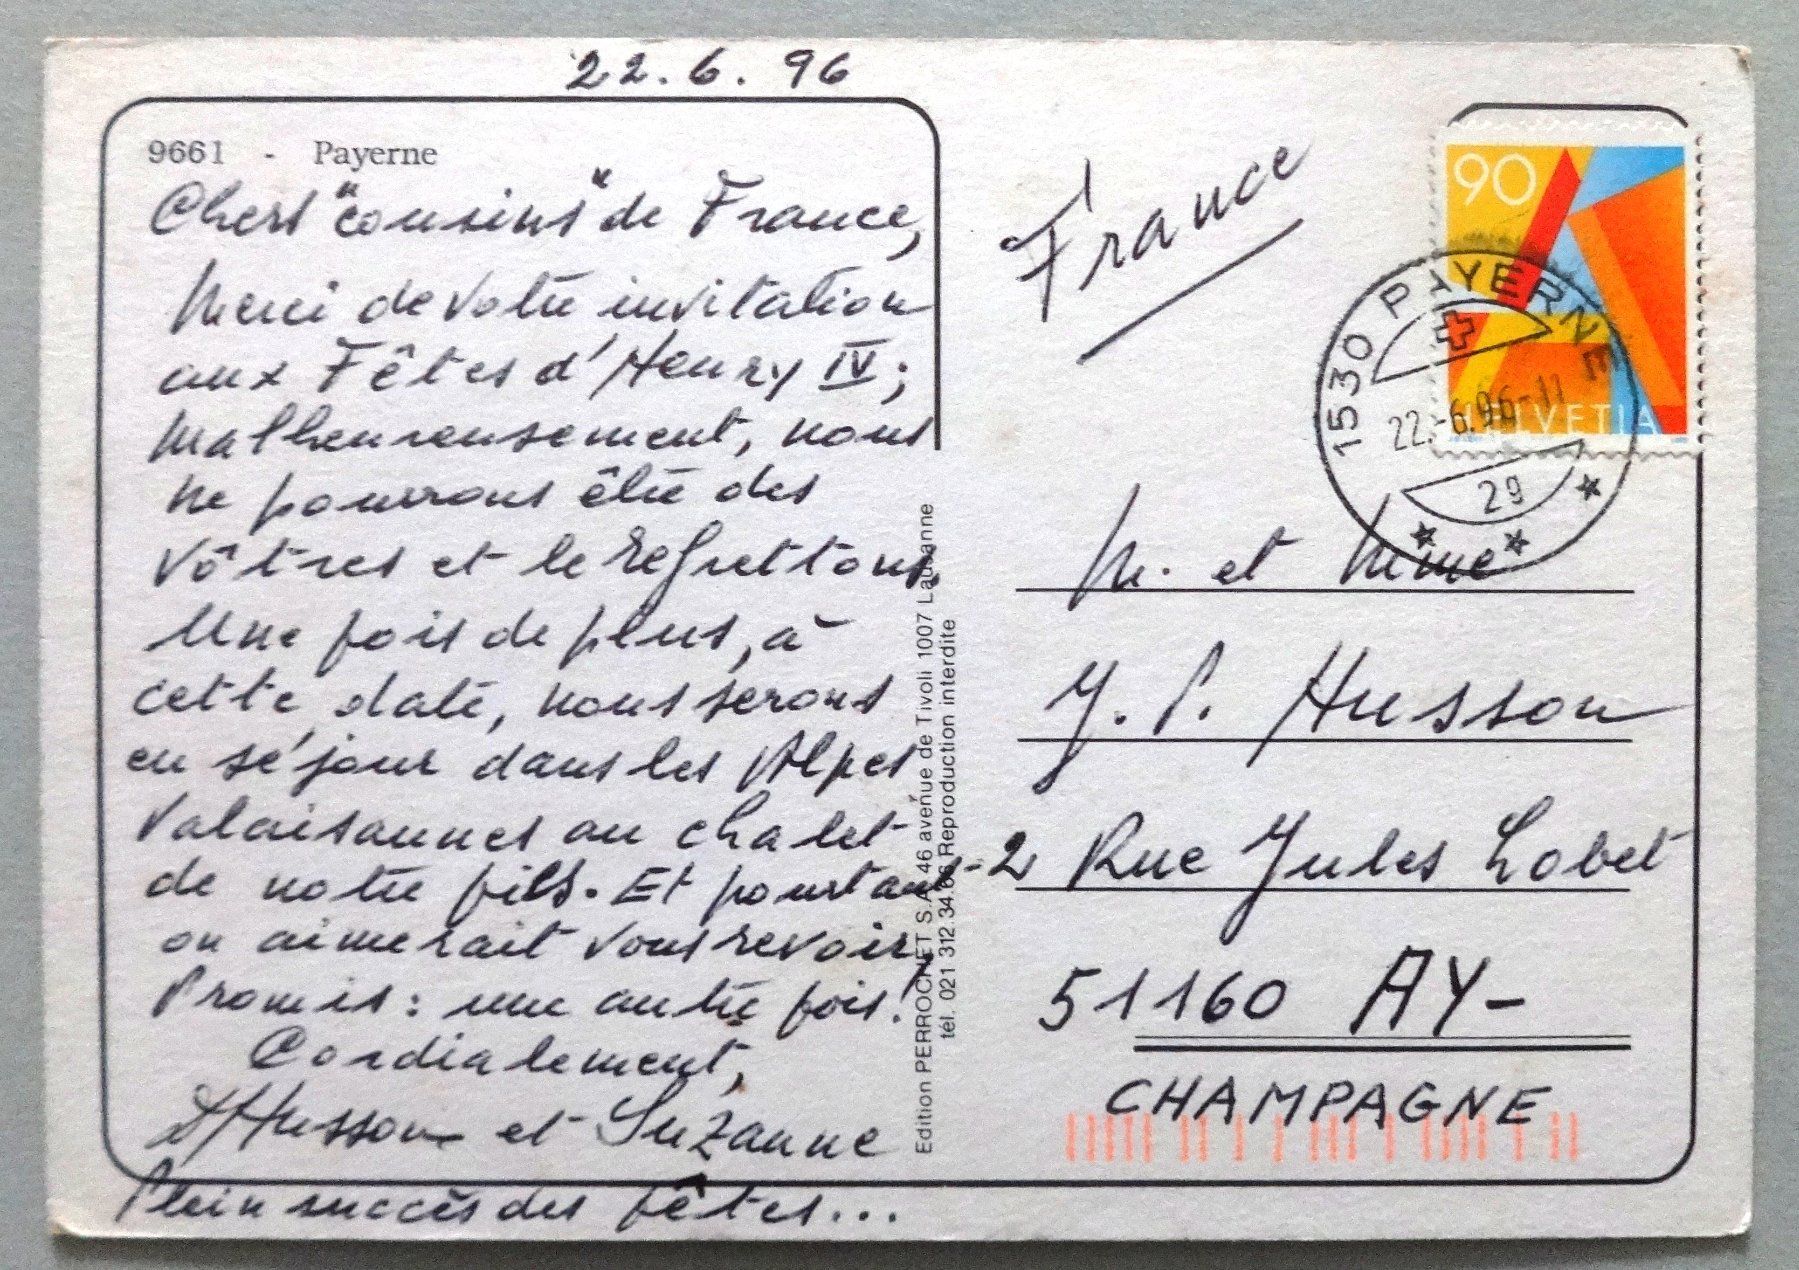 22.6.96
9661 - Payerne
Chers "cousins" de France,
Merci de votre invitation
aux Fêtes d'Henry IV;
malheureusement, nous
ne pourrons être des
vôtres et le regrettons.
Une fois de plus, à
cette date, nous serons
en séjour dans les Alpes
Valaisannes au chalet
de notre fils. Et pourtant
on aimerait vous revoir.
Promis: une autre fois!
Cordialement,
Husson et Suzanne
Plein succès des fêtes...
Edition PERROCHET S.A. 46 avenue de Tivoli 1007 Lausanne
tél. 021 312.34. Reproduction interdite
France
90
HELVETIA
1530 PAYERNE
22.-6.96-11
29
M. et Mme
J. P. Husson
2 Rue Jules Lobet
51160 AY-
CHAMPAGNE